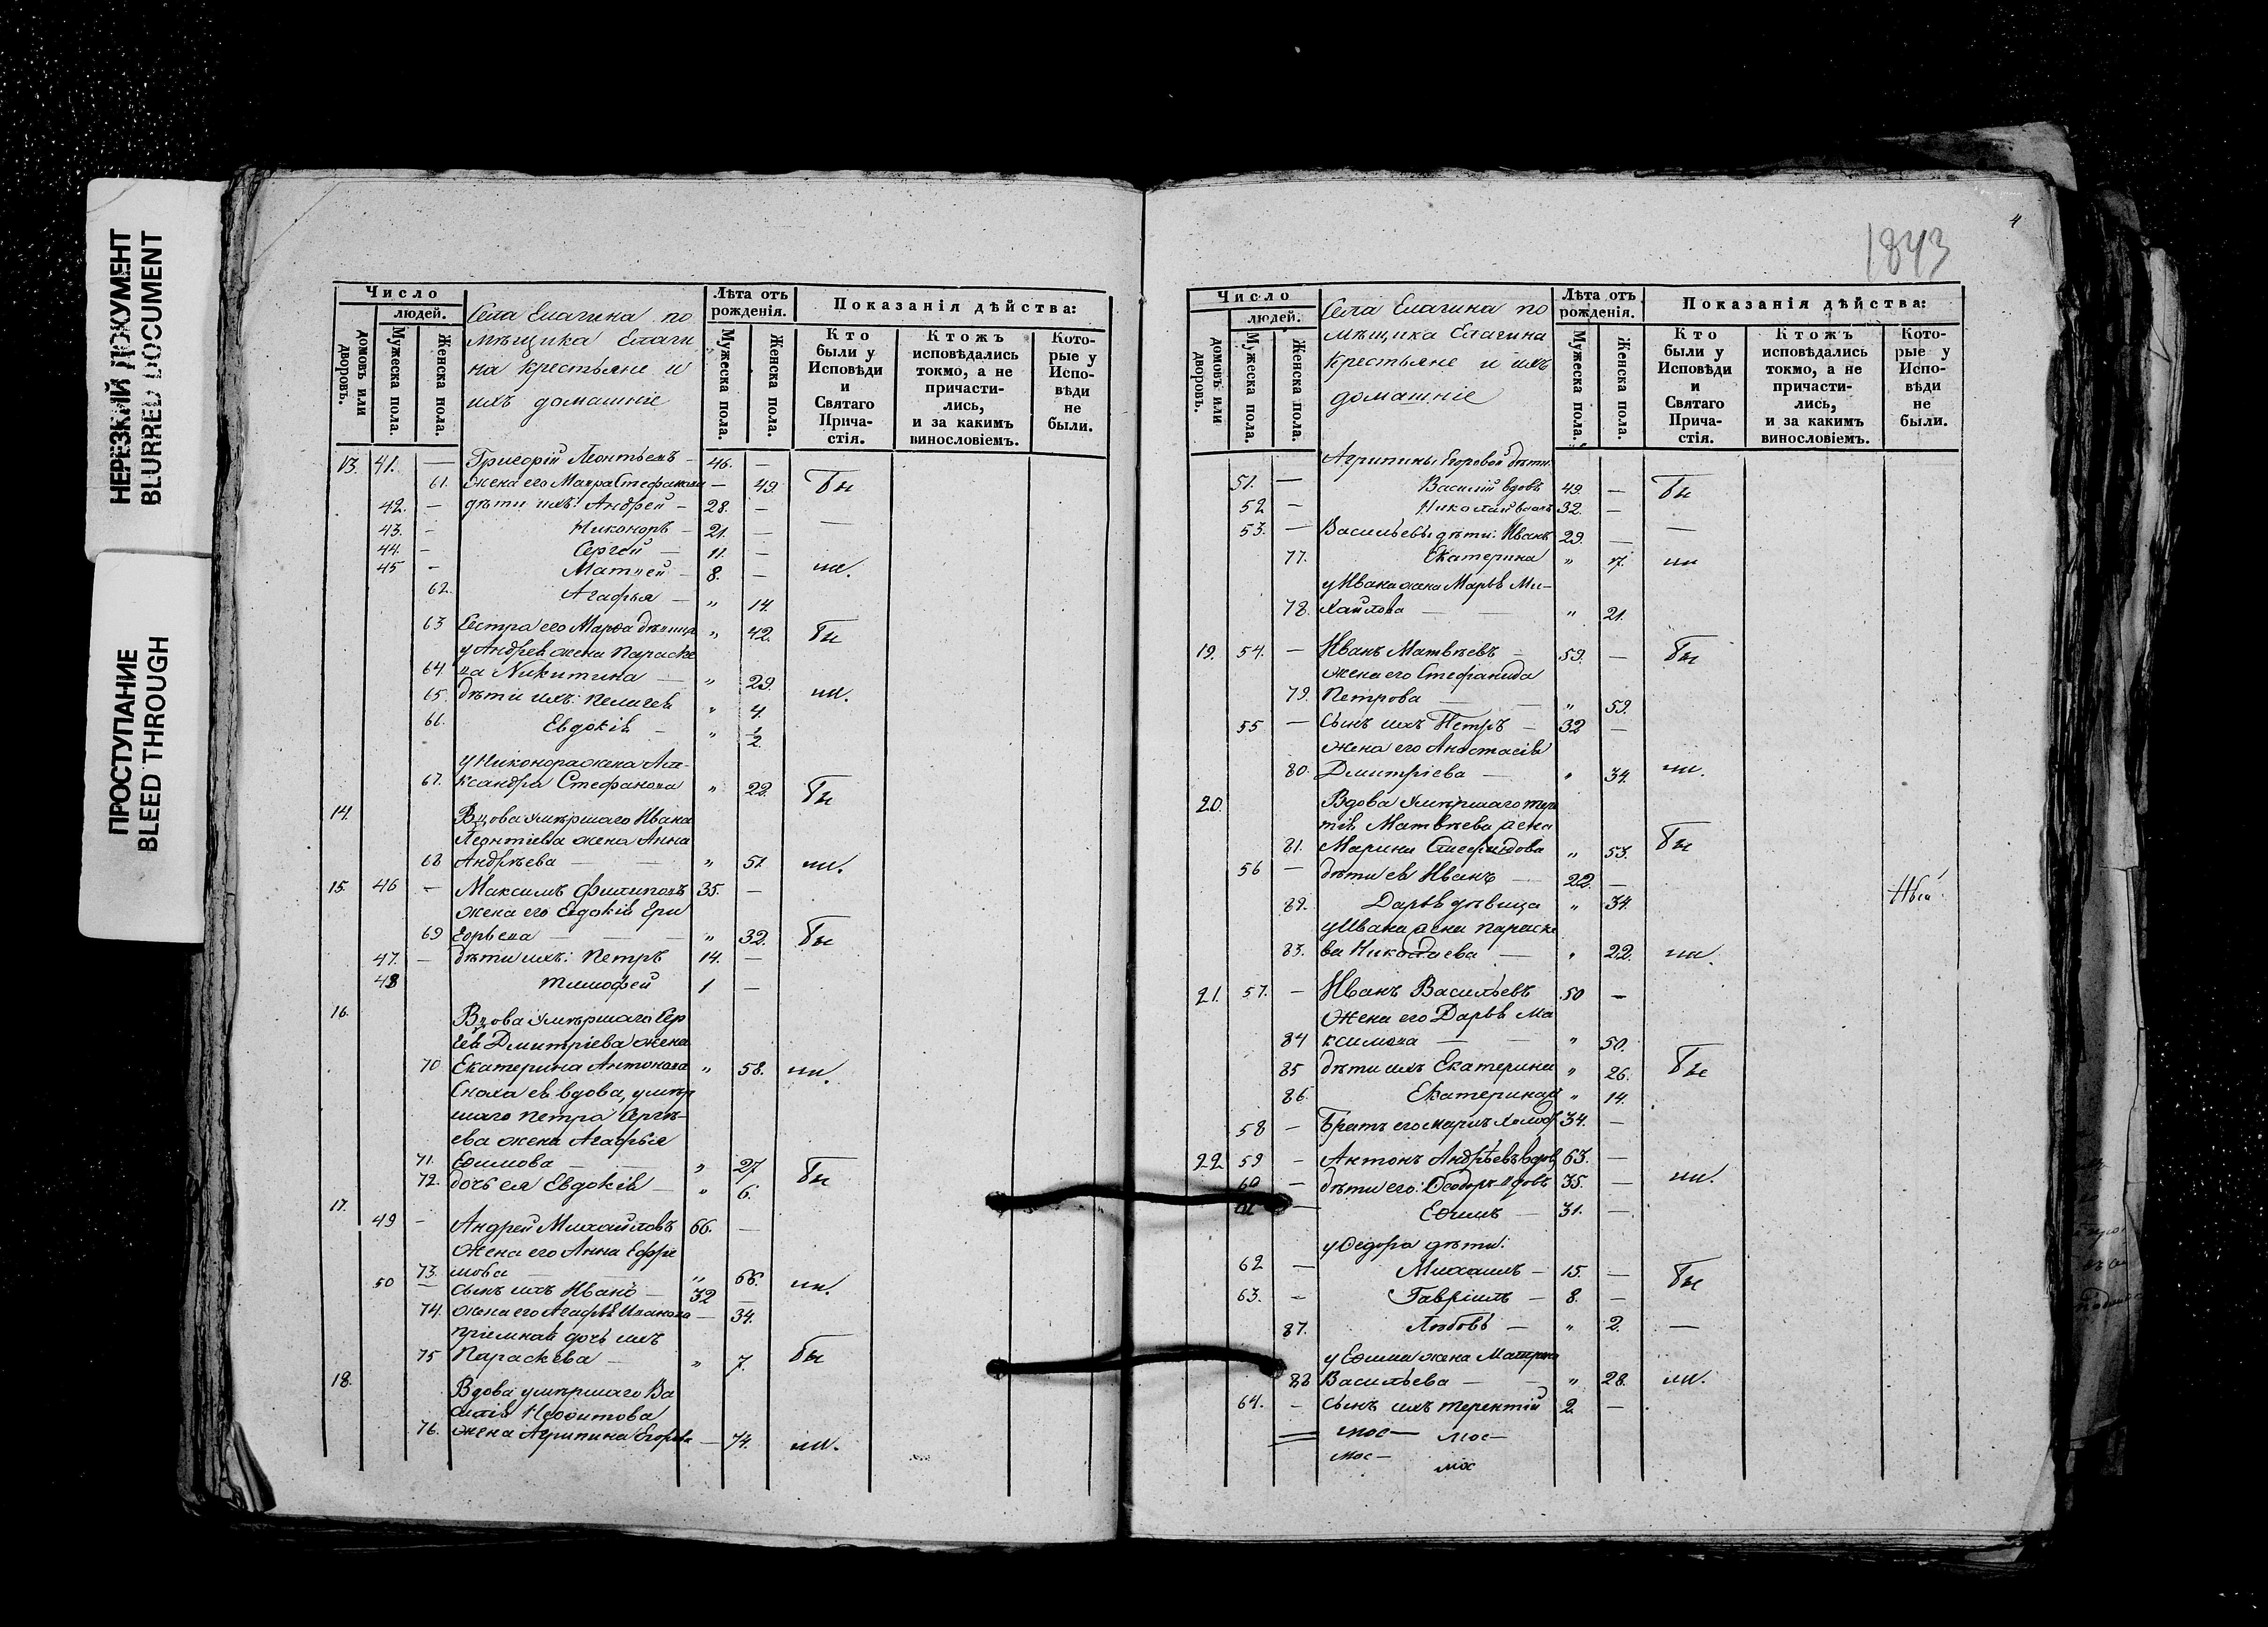 НЕРЕЗКИЙ ДОКУМЕНТ
BLURRED DOCUMENT
ПРОСТУПАНИЕ
BLEED THROUGH
Число
людей.
домовъ или дворовъ.
Мужеска пола.
Женска пола.
Села Елагина по
мѣщика Елаги
на крестьяне и
ихъ домашніе
Лѣта отъ рожденія.
Мужеска пола.
Женска пола.
Показанія дѣйства:
Кто были у Исповѣди и Святаго Прича-стія.
Ктожъ исповѣдались токмо, а не причасти-лись, и за какимъ винословіемъ.
Кото-рые у Испо-вѣди не были.
13. 41. — Григорій Леонтьевъ — 46. —
61. жена его Мавра Стефанова — 49. бы
42. — дѣти ихъ: Андрей — 28. —
43. — Никоноръ — 21. — —
44. — Сергей — 11. —
45 — Матвей — 8. — ли.
62. Агафья — " 14.
63 Сестра его Марѳа дѣвица " 42. бы
у Андрея жена Параске
64. ва Никитина — " 29.
65. дѣти ихъ: Пелагея " 4. ли.
66. Евдокія — " 1/2.
у Никонора жена Але-
67. ксандра Стефанова " 22. бы
14. Вдова умершаго Ивана
Леонтіева жена Анна
68 Андрѣева — — " 51 ли.
15. 46 — Максимъ Филиповъ 35. —
жена его Евдокія Гри
69 горьева — — — " 32. бы
47. — дѣти ихъ: Петръ 14. —
48 Тимофей 1 —
16. Вдова умершаго Сер
гея Дмитріева жена
70 Екатерина Антонова " 58. ли.
Сноха ея вдова, умер
шаго Петра Сергѣ-
ева жена Агафья
71. Ефимова — — " 27 бы
72. дочь ея Евдокія — " 6.
17. 49 — Андрей Михайловъ 66. —
жена его Анна Ефре
73. мова — " 66. ли.
50 — сынъ ихъ Иванъ — 32 —
74. жена его Агафья Иванова — 34.
пріемная дочь ихъ
75 Параскева — " 7. бы
18. Вдова умершаго Ва
силія Неофитова
76. жена Агрипина Егорова — 74. ли.
1843
4
Число
людей.
домовъ или дворовъ.
Мужеска пола.
Женска пола.
Села Елагина по
мѣщика Елагина
крестьяне и ихъ
домашніе
Лѣта отъ рожденія.
Мужеска пола.
Женска пола.
Показанія дѣйства:
Кто были у Исповѣди и Святаго Прича-стія.
Ктожъ исповѣдались токмо, а не причасти-лись, и за какимъ винословіемъ.
Кото-рые у Испо-вѣди не были.
Агрипины Егоровой дѣти:
51. — Василій вдовъ 49. — бы
52 — Николай вдовъ 32. —
53. — Васильевы дѣти: Иванъ 29. — —
77. Екатерина " 17. ли
у Ивана жена Марья Ми-
78. хайлова — — " 21.
19. 54. — Иванъ Матвѣевъ — 59. — бы
жена его Стефанида
79. Петрова — — " 59.
55 — сынъ ихъ Петръ — 32 —
жена его Анастасія
80. Дмитріева — " 34. ли.
20. Вдова умершаго Тере
тія Матвѣева жена
81. Марина " 53. бы
56 — дѣти ея Иванъ — 22. —
82. Дарья дѣвица " 34.
у Ивана жена Параске
83. ва Николаева — " 22. ли.
21. 57. — Иванъ Васильевъ 50 —
жена его Дарья Ма
84 ксимова — — " 50.
85 дѣти ихъ Екатерина " 26. бы
86. Екатерина " 14.
58 — Братъ его 34. —
22 59 — Антонъ Андрѣевъ вдовъ 63. —
60 — дѣти его: Ѳеодоръ вдовъ 35. — ли.
61 — Ефимъ — 31. —
у Ѳедора дѣти:
62 — Михаилъ — 15. — бы
63. — Гавріилъ — 8. —
87. Любовь — " 2. —
у Ефима жена Матрона
88 Васильева — — " 28. ли.
64. — сынъ ихъ Терентій 2. —